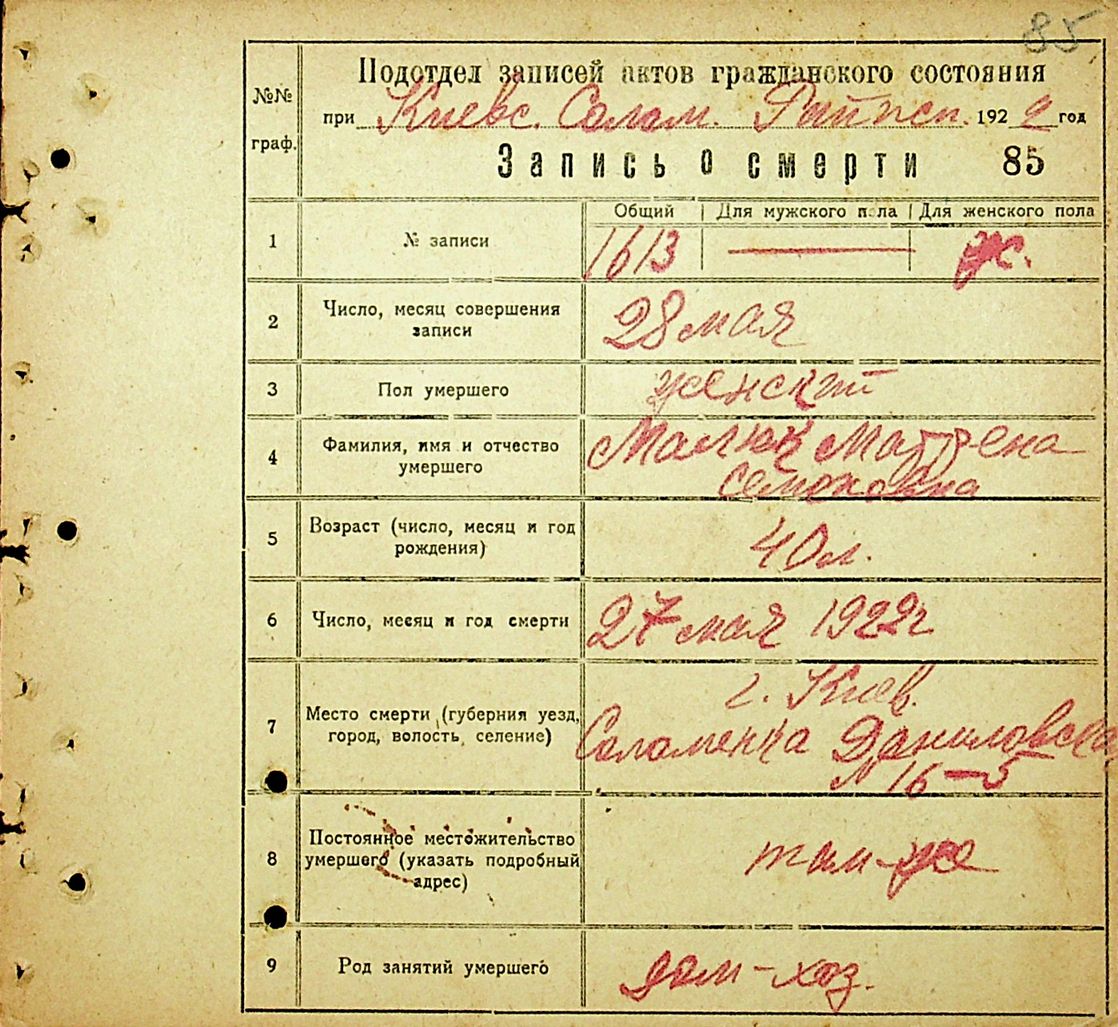 85
Подотдел записей актов гражданского состояния
№№ граф.
при Киевс. Солом. 1922 год
Запись о смерти 85
Общий Для мужского пола Для женского пола
1 № записи 1613 — ж.
2 Число, месяц совершения записи 28 мая
3 Пол умершего женский
4 Фамилия, имя и отчество умершего Малюк Матрена
Семоновна
5 Возраст (число, месяц и год рождения) 40 л.
6 Число, месяц и год смерти 27 мая 1922 г
7 Место смерти (губерния уезд, город, волость, селение) г. Киев.
Соломенка Даниловска
№ 16-5
8 Постоянное местожительство умершего (указать подробный адрес) там-же
9 Род занятий умершего дом-хоз.